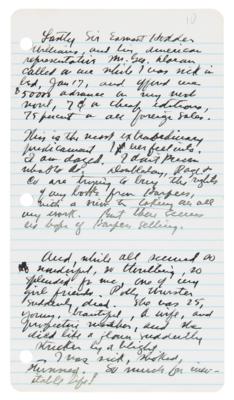 10
Lastly Sir Earnest Hodder
Williams, and his american
representative Mr. Geo. Doran
called on me while I was sick in
bed, Jan 17, and offered me
$5000 advance on my next
novel, 7¢ on cheap editions,
75 percent on all foreign sales.
This is the most extraordinary
predicament I ever felt in.
I am dazed. I don't know
what to do. Doubleday, Page &
Co are trying to buy the rights
to my books from Harpers,
with a view to taking over all
my work. But there seems
no hope of Harpers selling.
And, while all seemed so
wonderful, so thrilling, so
splendid for me, one of my
girl friends, Polly Wurster
suddenly died. She was 25,
young, beautiful, a wife, and
prospective mother, and she
died like a flower suddenly
stricken by a blight.
I was sick, shocked,
stunned. So much for inev-
itable life!